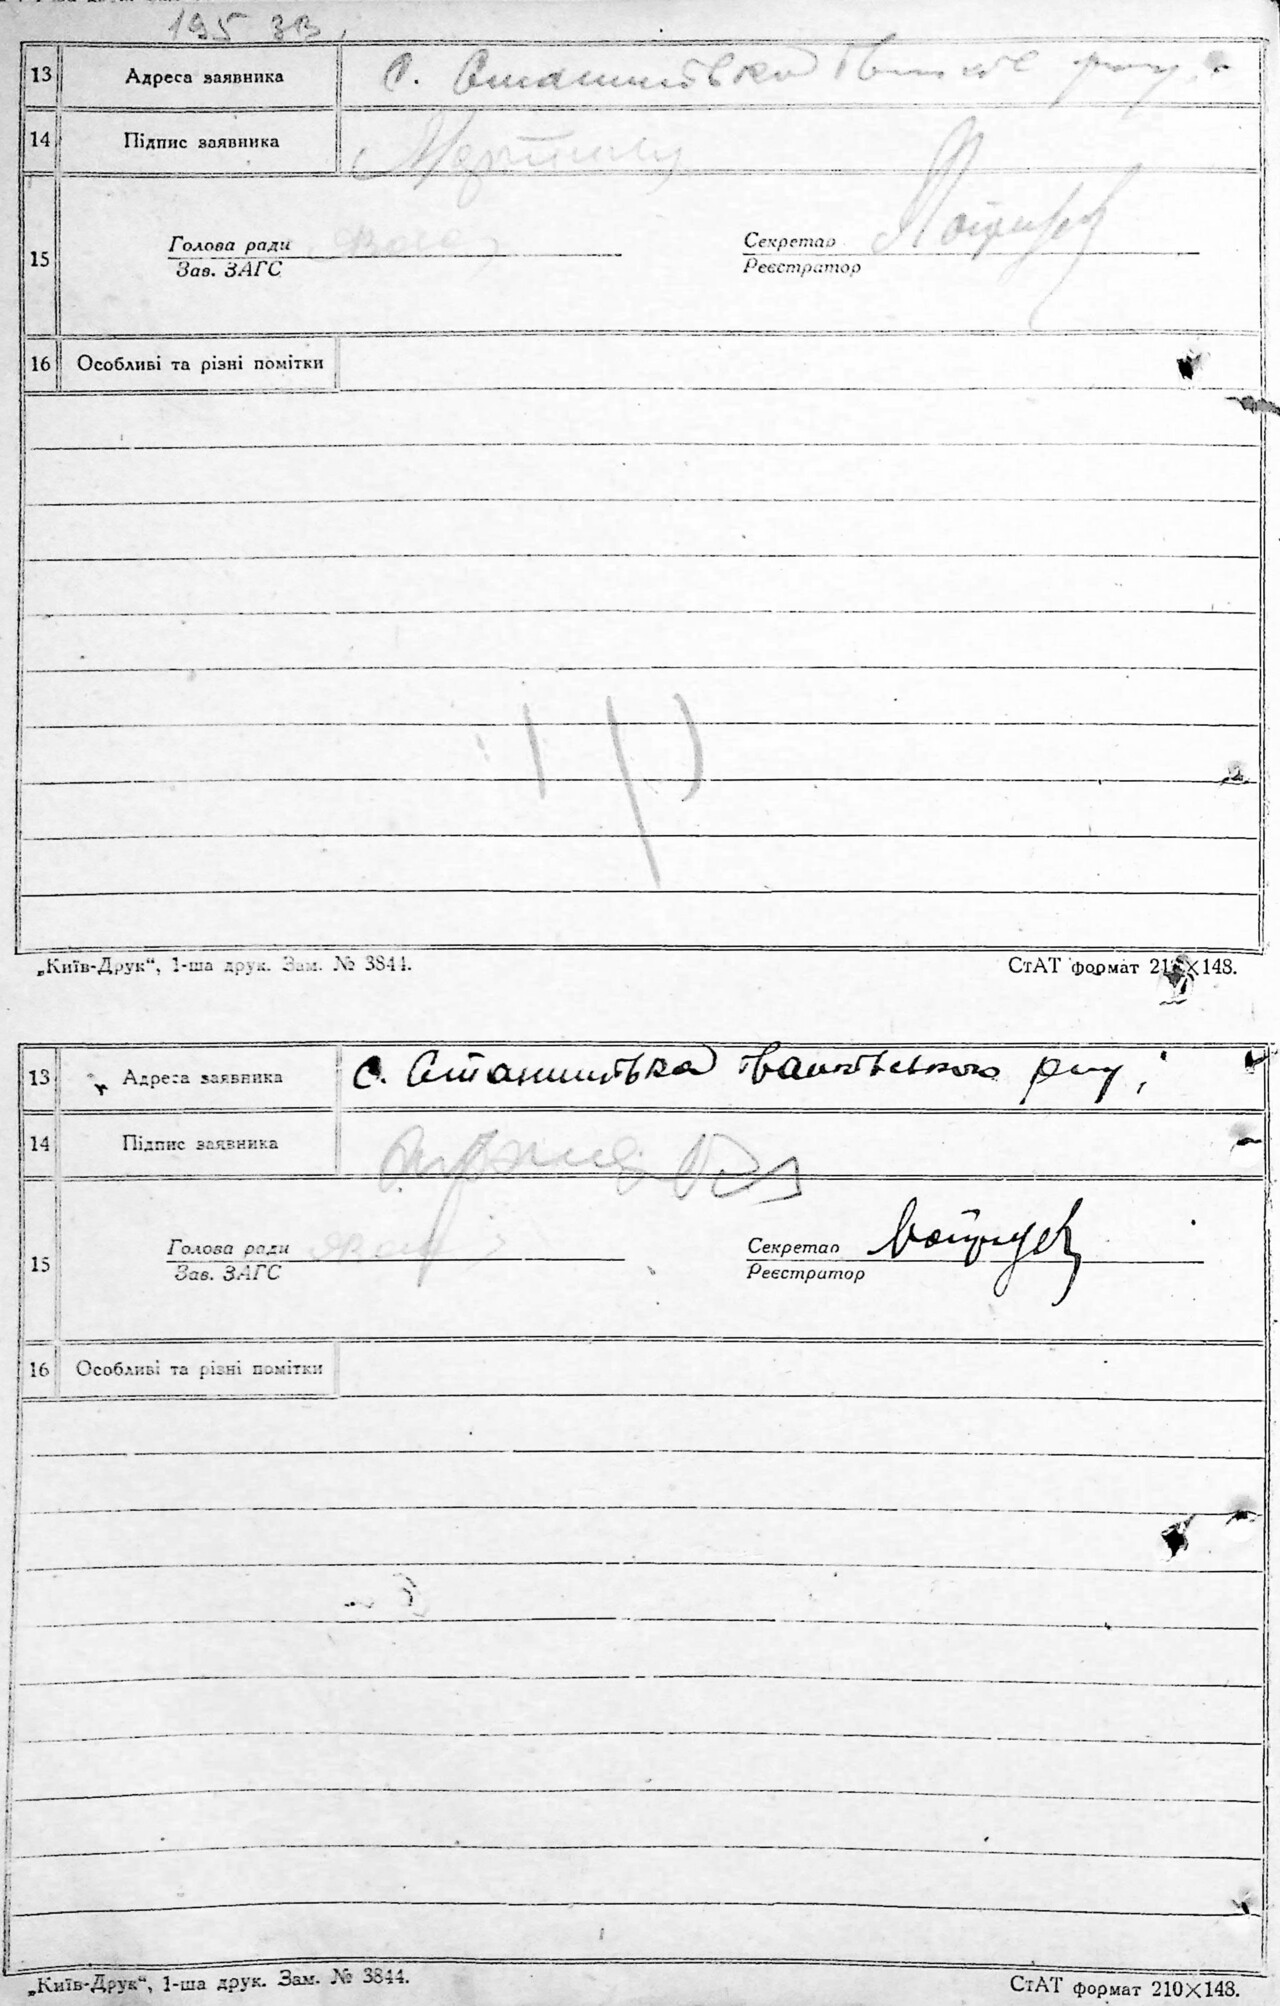 195 зв.
13 Адреса заявника с. Станишівка
14 Підпис заявника
15 Голова ради Секретар
Зав. ЗАГС Реєстратор
16 Особливі та різні помітки
„Київ-Друк“, 1-ша друк. Зам. № 3844. СтАТ формат 210×148.
13 Адреса заявника с. Станишівка Іванківського р-ну
14 Підпис заявника
15 Голова ради Секретар
Зав. ЗАГС Реєстратор
16 Особливі та різні помітки
„Київ-Друк“, 1-ша друк. Зам. № 3844. СтАТ формат 210×148.